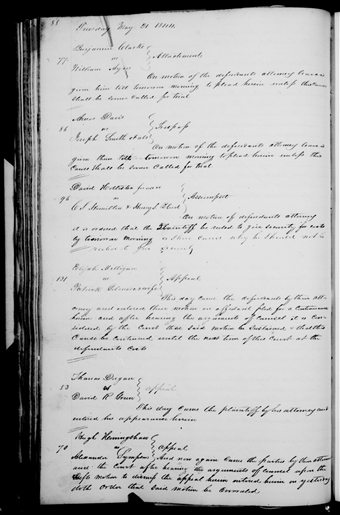 88
Tuesday May 21 1844
Benjamin Clark
vs
77
Attachment
William Ayres
On motion of the defendants attorney leave is
given him till tomorrow morning to plead herein unless this cause
shall be sooner called for trial
Davis
vs
86
Trespass
Joseph Smith
On motion of the defendants attorney leave is
given them till tomorrow morning to plead herein unless this
cause shall be sooner called for trial
David
vs
96
Assumpsit
On motion of defendants attorney
it is ordered that the Plaintiff be ruled to give security for costs
by tomorrow morning or show cause why he should not
Milligan
vs
131
Appeal
This day came the defendants by their att
orney and entered their motion on affidavit filed for a continuance
herein and after hearing the arguments of counsel it is con
sidered by the Court that said motion be sustained & that this
cause be continued until the next term of this Court at the
defendants costs
Thomas Dugan
vs
53
Appeal
David R
This day came the plaintiff by his attorney and
entered his appearance herein
Hugh
vs
70
Appeal
And now again came the parties by their attor
nies the Court after hearing the arguments of counsel upon the
motion to dismiss the appeal herein entered herein on yesterday
doth order that said motion be overruled